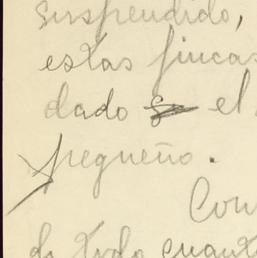 suspendido,
estas fincas
dado el
pequeño.
Con
de todo cuant